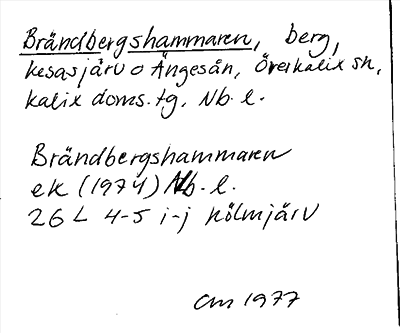 Brändbergshammaren, berg,
kesasjärv o Ängesån, Överkalix sn,
kalix doms.tg, Nb. l.
Brändbergshammaren
ek (1974) Nb. l.
26 L 4-5 i-j Kölmjärv
CM 1977